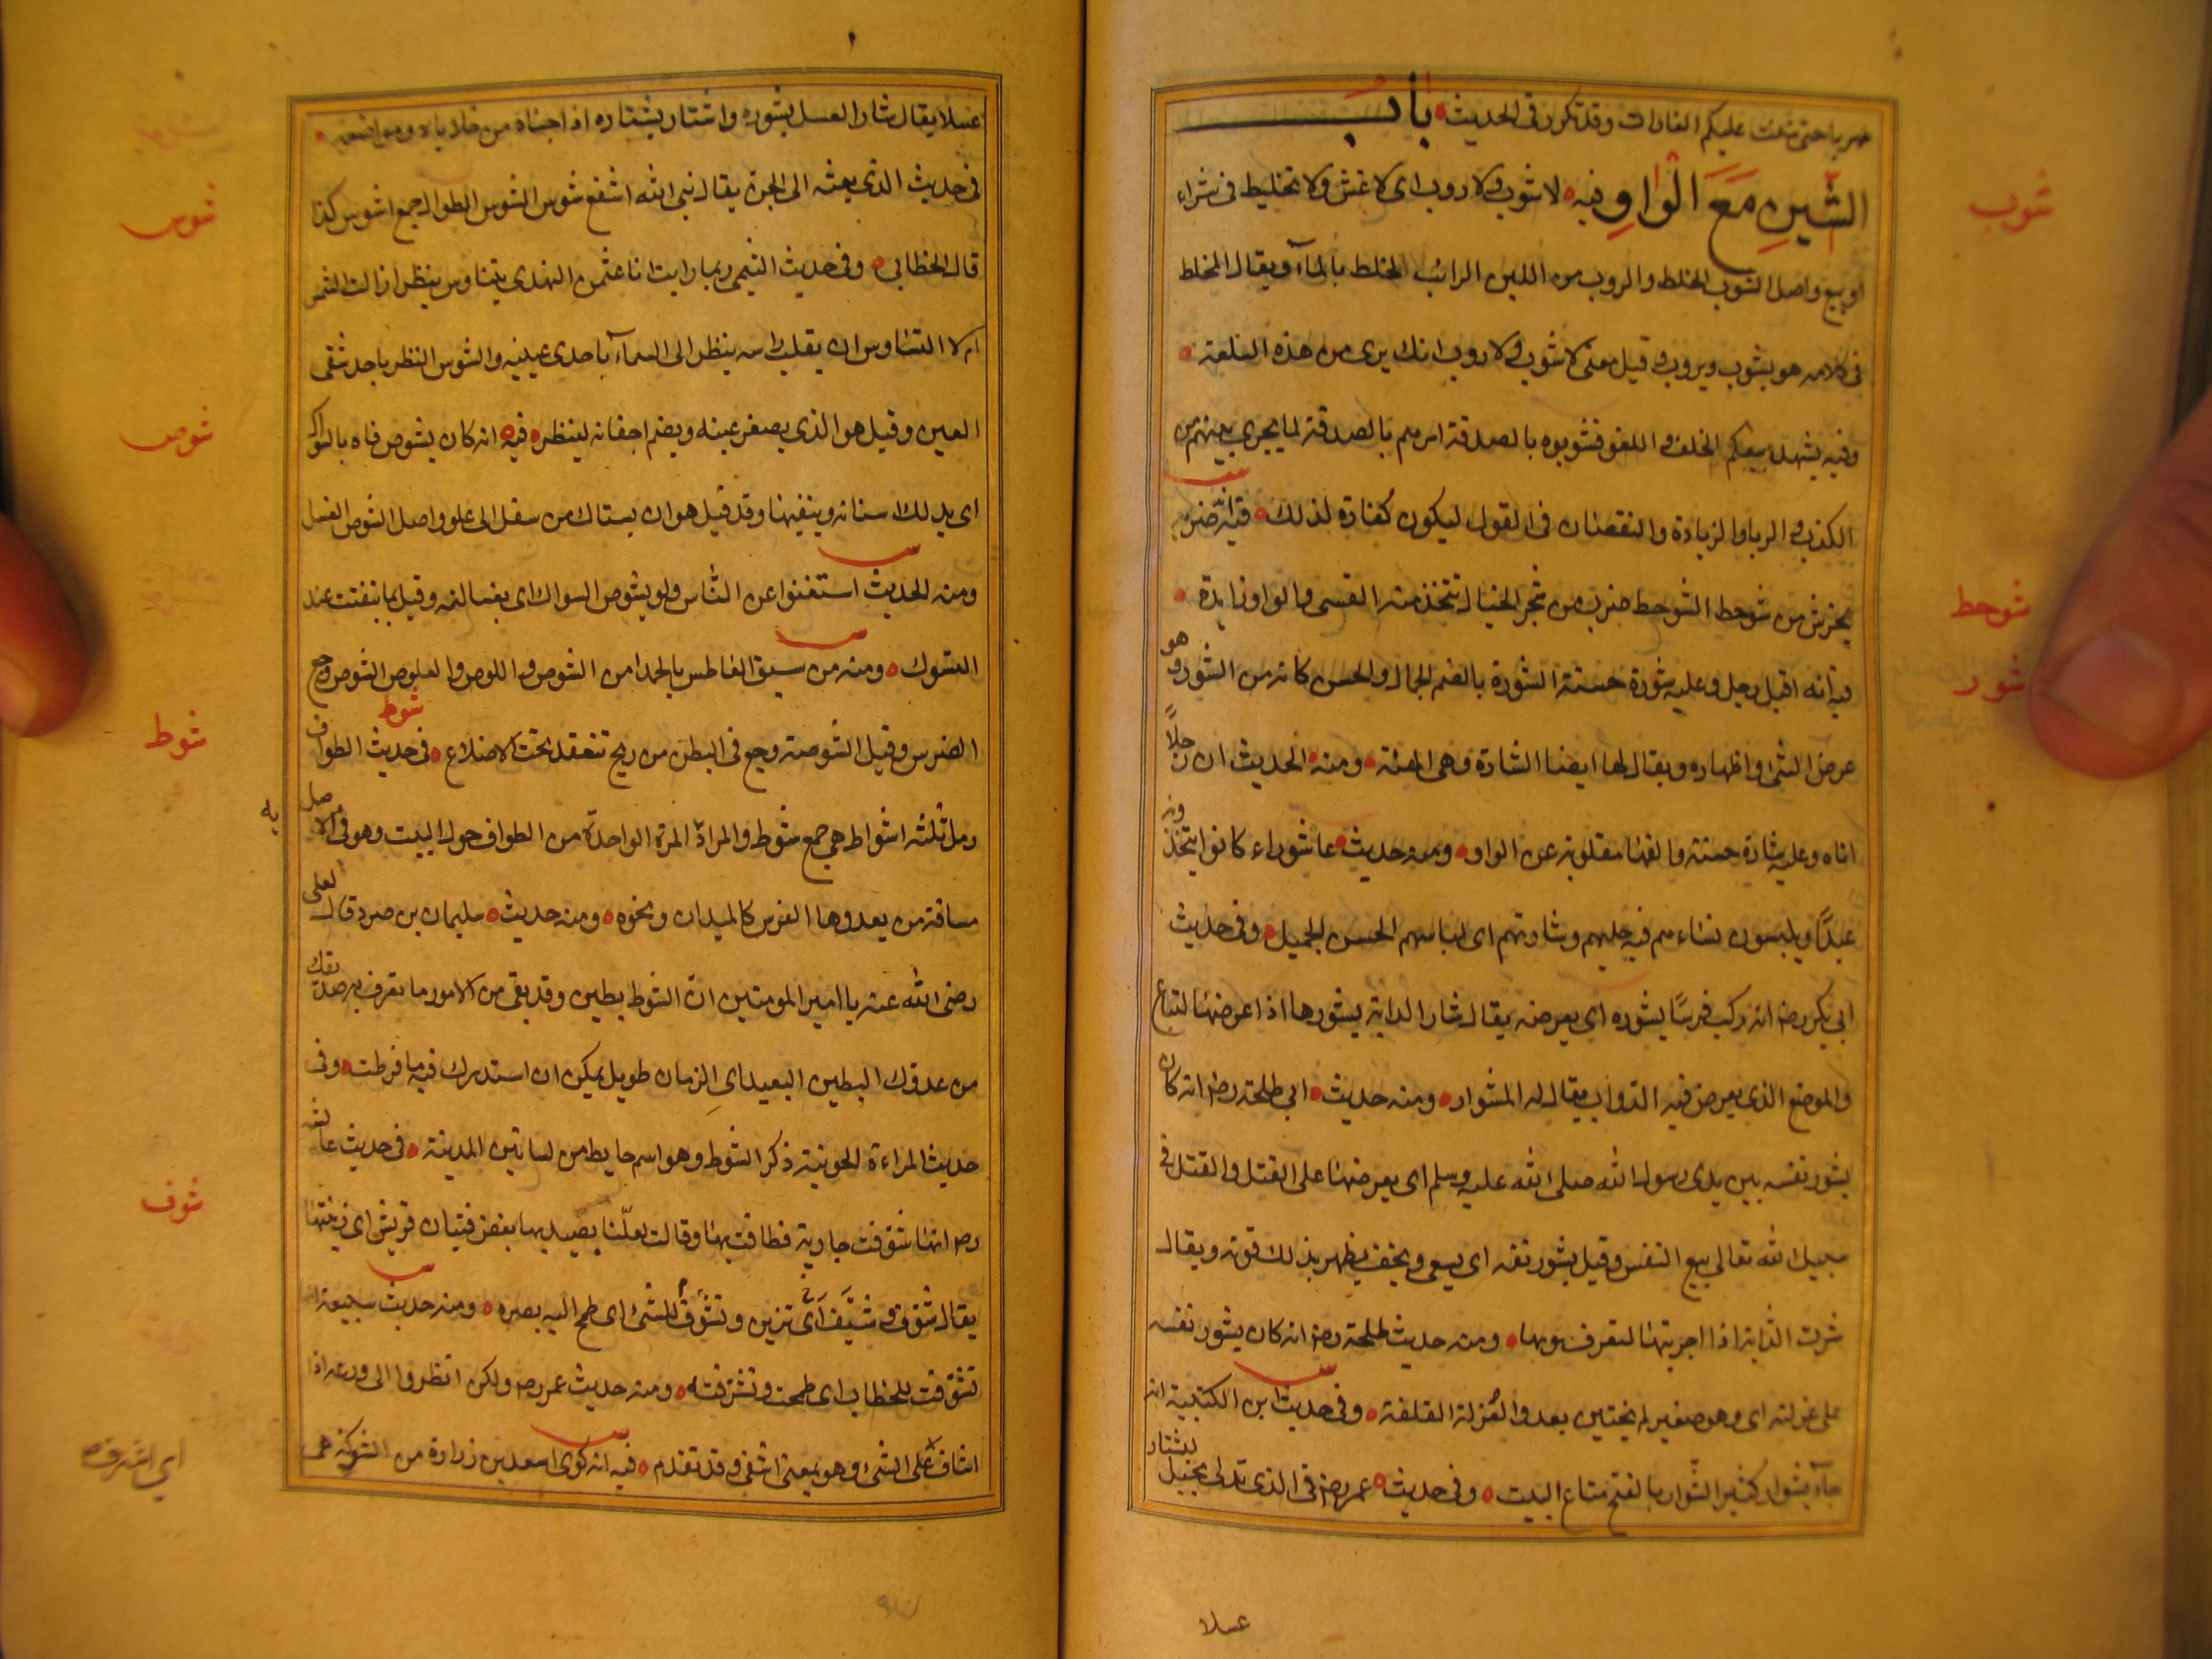 ضربا حتى شغت عليكم الغارات وقد تكرر فى الحديث باب
الشين مع الواو فيه لا شوب ولا روب اى لا غش ولا تخليط فى شراء
شوب
او بيع واصل الشوب الخلط والروب من اللبن الرائب لخلط بالمآء ويقال المخلط
فى كلامه هو يشوب ويروب وقيل معنى لا شوب ولا روب انك برى من هذه السلعة
وفيه يشهد بيعكم الحلف واللغو فشوبوه بالصدقة امرهم بالصدقة لما يجرى بينهم من
الكذب والربا والزيادة والنقصان فى القول ليكون كفارة لذلك فيه انه ضربه
بمخرش من شوحط الشوحط ضرب من شجر الجبال تتخذ منه القسى والواو زايدة
شوحط
فيه انه اقبل رجل وعليه شورة حسنة الشورة بالضم الجمال والحسن كانه من الشور وهو
شور
عرض الشئ واظهاره ويقال لها ايضا الشارة وهى الهيئة ومنه الحديث ان رجلاً
اتاه وعليه شارة حسنة والفها مقلوبة عن الواو ومنه حديث عاشوراء كانوا يتخذونه
عيدًا ويلبسون نساءهم فيه حليهم وشارتهم اى لباسهم الحسن الجميل وفى حديث
ابى بكر رضه انه ركب فرسًا يشوره اى يعرضه يقال شار الدابة يشورها اذا عرضها لتباع
والموضع الذى يعرض فيه الدواب يقال له المشوار ومنه حديث ابى طلحة رضه انه كان
يشور نفسه بين يدى رسول الله صلى الله عليه وسلم اى يعرضها على القتل والقتل فى
سبيل الله تعالى بيع النفس وقيل يشور نفسه اى يسعى ويخف يظهر بذلك قوته ويقال
شرت الدابة اذا اجريتها لتعرف قوتها ومنه حديث طلحة رضه انه كان يشور نفسه
على غرلته اى وهو صغير لم يختتن بعد والغرلة القلفة وفى حديث ابن اللتبية انه
جآء بشوار كثير الشوار بالفتح متاع البيت وفى حديث عمر رضه فى الذى تدلى بحبل ليشتار
عسلا
عسلا يقال شار العسل يشوره واشتار يشتاره اذا اجتناه من خلاياه ومواضعه
فى حديث الذى بعثه الى الجن يقال نبى الله اشفع شوس الشوس الطوال جمع اشوس كذا
شوس
قال الخطابى وفى حديث التيمى ربما رايت ابا عثمن النهدى يتشاوس ينظر ازالت الشمس
ام لا التشاوس ان يقلب راسه ينظر الى السمآء باحدى عينيه والشوس النظر باحد شقى
العين وقيل هو الذى يصغر عينه ويضم اجفانه لينظر فيه انه كان يشوص فاه بالسواك
شوص
اى يدلك اسنانه وينقيها وقد قيل هو ان يستاك من سفل الى علو واصل الشوص الغسل
ومنه الحديث استغنوا عن الناس ولو بشوص السواك اى بغسالته وقيل بما يتفتت عند
التسوك ومنه من سبق العاطس بالحمد امن الشوص واللوص والعلوص الشوص وجع
الضرس وقيل الشوصة وجع فى البطن من ريح تنعقد تحت الاضلاع فى حديث الطواف
شوط
شوط
رمل ثلثة اشواط هى جمع شوط والمراد به المرة الواحدة من الطواف حول البيت وهو فى الاصل
مسافة من يعدوها الفرس كالميدان ونحوه ومنه حديث سليمان بن صرد قال لعلى
رضى الله عنه يا امير المؤمنين ان الشوط بطين وقد بقى من الامور ما تعرف به صديقك
من عدوك البطين البعيد اى الزمان طويل يمكن ان استدرك فيه ما فرطت وفى
حديث المراءة الجونية ذكر الشوط وهو اسم حايط من بساتين المدينة فى حديث عائشه
رضه انها شوفت جارية فطافت بها وقالت لعلّنا نصيد بها بعض فتيان قريش اى زينتها
شوف
يقال شوف وشيّف اى تزين وتشوف للشئ اى طمح اليه بصره ومنه حديث سبيعة انها
تشوفت للخطاب اى طمحت وتشرفت ومنه حديث عمر رضه ولكن انظروا الى ورعه اذا
اشاف على الشئ وهو بمعنى اشفى وقد تقدم فيه انه كوى اسعد بن زرارة من الشوكة هى
اى اشرف